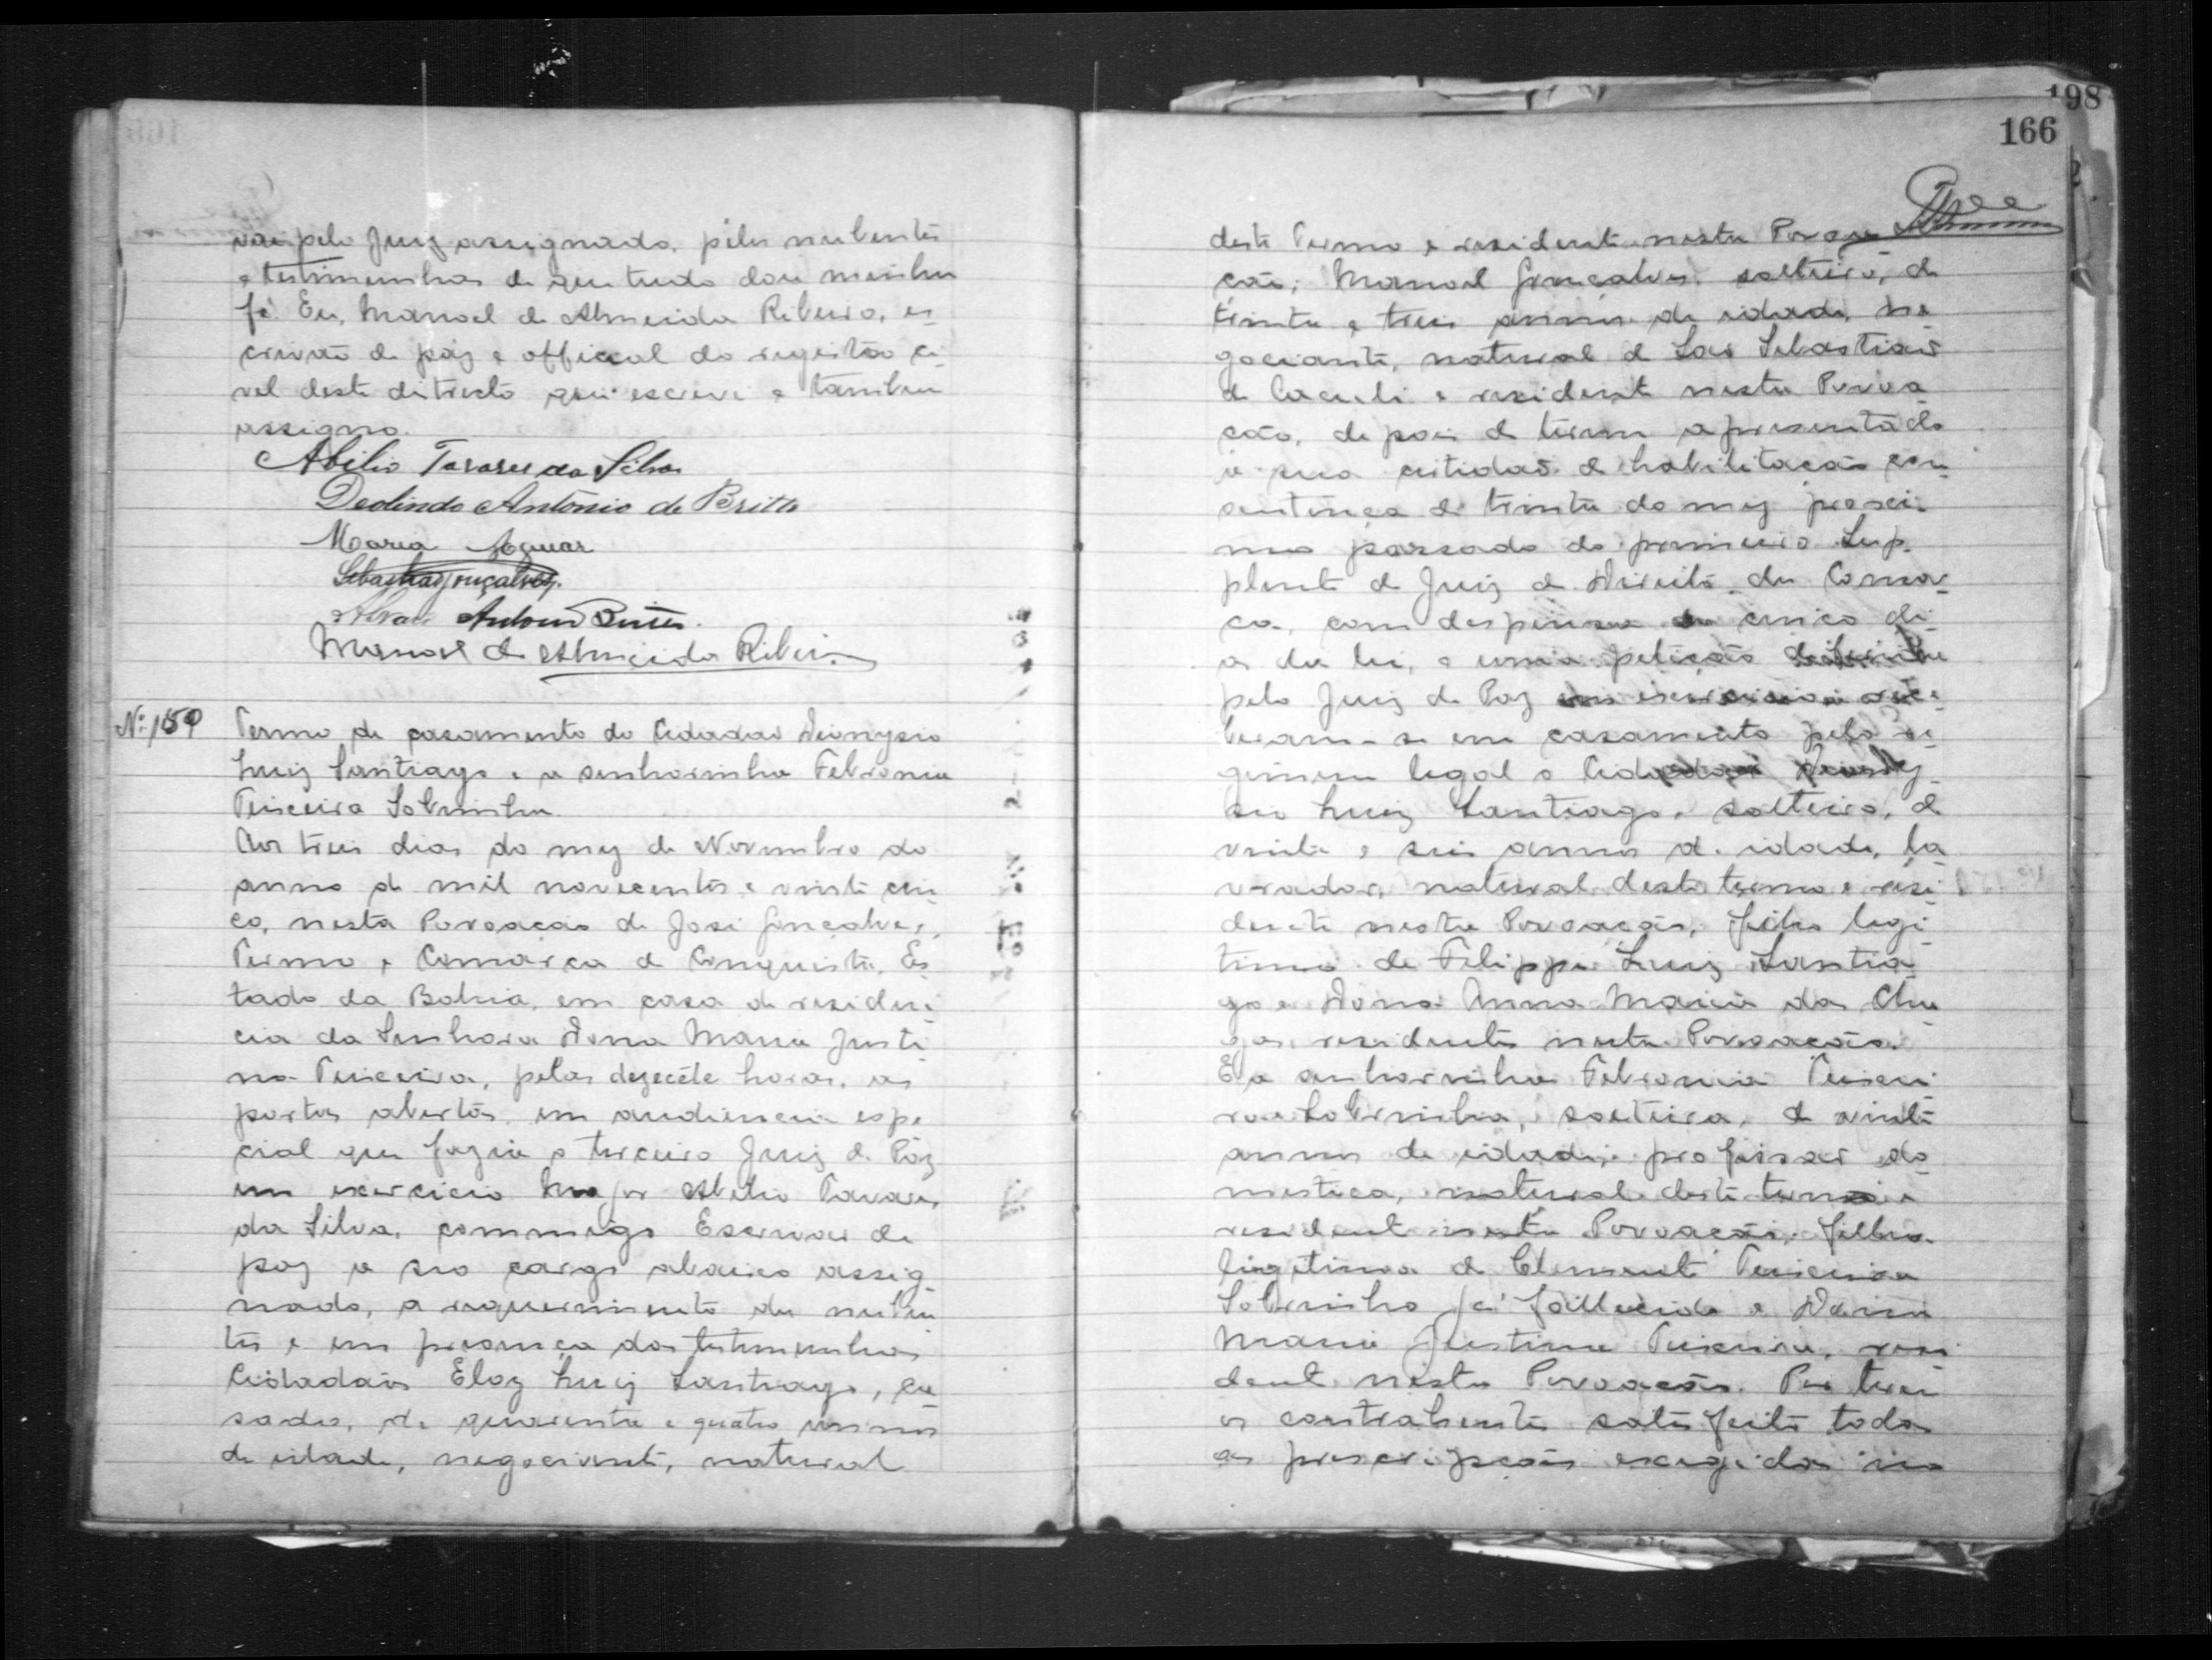 vai pelo Juiz assignado, pelos nubentes
e testimunhas de que tudo dou minha
fé. Eu, Manoel de Almeida Ribeiro, es
crivão de paz e official do registão ci
vel deste ditricto que escrevi e tambem
assigno.
Abilio Tavares da Silva
Deolindo Antônio de Britto
Maria Aguiar
Sebastião Gonçalves.
Antonio
Manoel de Almeida Ribeiro
Nº 159
Termo de casamento do Cidadão Dionysio
Luiz Santiago e a senhorinha Febronia
Teixeira Sobrinha.
Aos treis dias do mez de Novembro do
anno de mil novecentos e vinte cin
co, nesta Povoacão de José Gonçalves,
Termo e Comarca de Conquista, Es
tado da Bahia, em casa de residen
cia da Senhora Dona Maria Justi
na Teixeira, pelas dezecéte horas, as
portas abertas, em audiencia espe
cial que fazia o terceiro Juiz de Páz
em exercicio Major Abilio Tavares
da Silva, commigo Escrivão de
paz a seo cargo abaixo assig
nado, a requerimento dos nuben
tes e em presença das testemunhas
Cidadãos Eloy Luiz Santiago, ca
sado, de quarenta e quatro annos
de idade, negociante, natural
198
166
deste Termo e residente nesta Povoa
cão, Manoel Gonçalves, solteiro, de
trinta e treis annos de idade, ne
gociante, natural de São Sebastião
de Caculi e residente nesta Povoa
cão, depois de terem apresentado
a sua certidão de habilitacão com
sentença de trinta do mez proxi
mo passado do primeiro Sup
plente de Juiz de Direito da Comar
ca, com despensa de cinco di
as da lei, e uma peticão
pelo Juiz de Paz em exercicio rece
beram-se em casamento pelo re
gimem legal o Cidadão Diony
sio Luiz Santiago, solteiro, de
vinte e seis annos de idade, la
vrador, natural deste termo e resi
dente nesta Povoacão, filho legi
timo de Filippe Luiz Santia
go e Dona Anna Maria das Cha
gas, residentes nesta Povoacão.
E a senhorinha Febronia Teixei
ra Sobrinha, solteira, de vinte
annos de idade, profissão do
mestica, natural deste termo e
residente nesta Povoacão, filha
ligitima de Clemente Teixeira
Sobrinho já fallecido e Dona
Maria Justina Teixeira, resi
dente nesta Povoacão. Por terem
os contrahentes satisfeito todas
as prescripções exegidas no